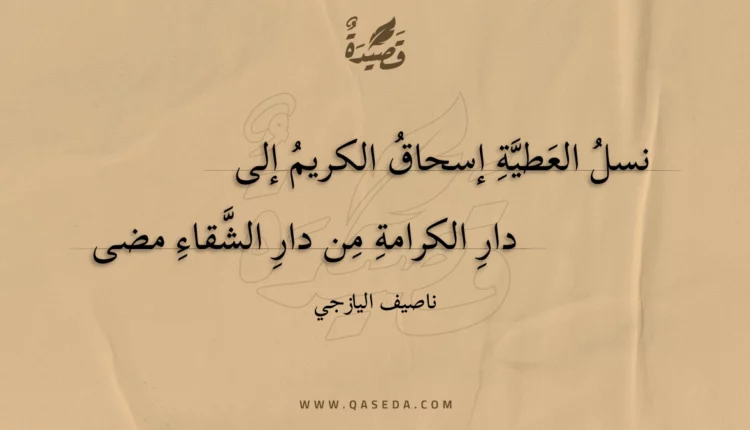 قَصِيْدَةٌ
نسلُ العَطيَّةِ إسحاقُ الكريمُ إلى
دارِ الكرامةِ مِن دارِ الشَّقاءِ مضى
ناصيف اليازجي
WWW.QASEDA.COM